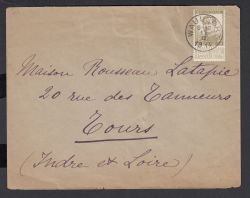 Maison Rousseau Latapie
20 rue des Tanneurs
Tours
(Indre et Loire)